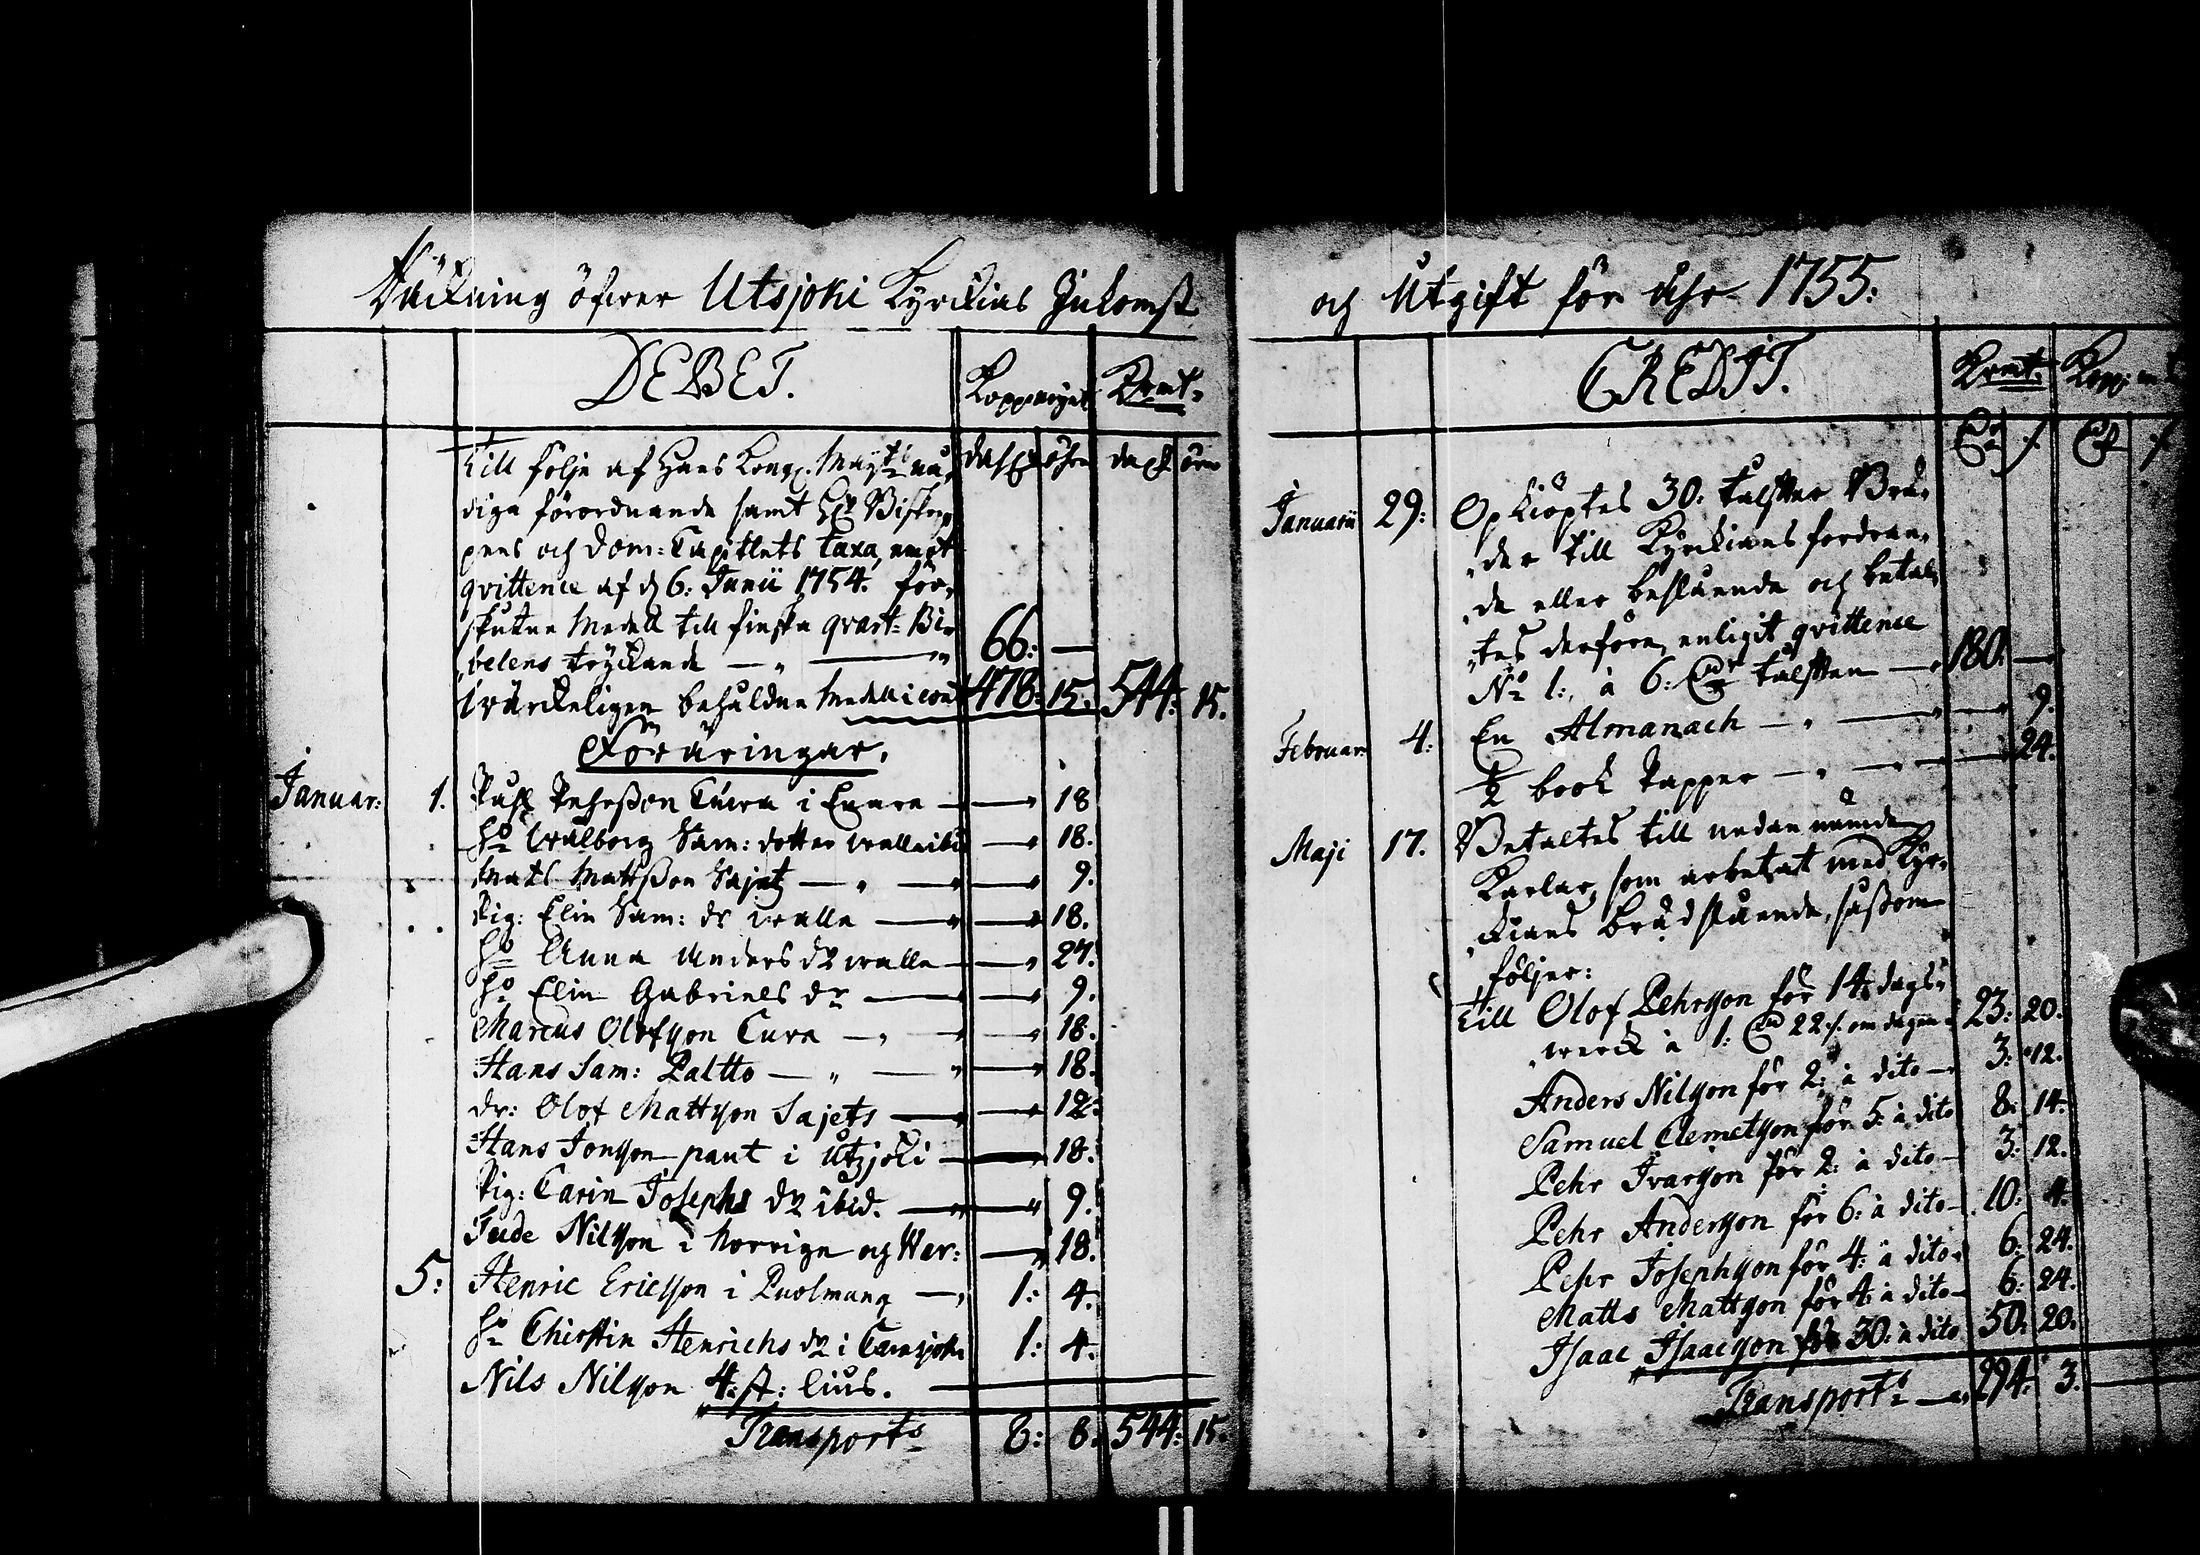 Räckning öfwer Utsjoki Kyrckias Inkomst
DEBET. Koppmynt Kmt:
Till följe af Hans Kongl. Mayts nå- dahlr öhre dahlr öre
diga förordnande samt H:r Biskop-
pens och Dom: Capitlets taxa, emot
qvittence af d 6: Junii 1754. för-
skutne Medell till finska qvart: Bi-
belens tryckande — " — " 66: —
wärckeligen behåldne Medell i cont 478: 15. 544: 15.
Föräringar.
Januar: 1. Påhl Pehrsson Cuwa i Enare — — 18
H:o Walborg Sam: dotter walle ibid — 18.
Mats Mattsson Sajetz — " — — 9.
Pig: Elin Sam: dr walle — — 18.
H:o Anna Anders dr walle — — 27.
H:o Elin Gabriels dr — — 9.
Marcus Olofsson Cuva — " — — 18.
Hans Sam: Paltto — " — — 18.
dr: Olof Mattsson Sajets — — 12:
Hans Jonsson paut i Utzjoki — 18:
Pig: Carin Josephs dr ibid. — " — " 9.
Fude Nilsson i Norrige og War: — 18.
5: Henric Ericsson i Puolmang — 1: 4.
H:o Chirstin Henrichs dr i Carasjoki 1: 4.
Nils Nilsson 4: st: lius. —
Transports 8: 8. 544: 15.
och Utgift för åhr 1755:
CREDIT. Kmt. Kopp: m
Januarii 29: Opkiöptes 30. talfter Brä-
der till Kyrckians fordran-
de eller beslående och betal-
tes derföre, enligit qvittence
No 1:, à 6: Dr talften — 180. —
Februar: 4: En Almanach — " — " — 9.
1/2 book Papper — " — " — 24.
Maji 17. Betaltes till nedan nämde
Karlar, som arbetat med Kyr-
ckians Brädslående, såssom
följer:
Till Olof Pehrsson för 14 dags-
werck à 1: Dr 22 /. om dagen - 23: 20.
Anders Nilsson för 2: à dito — 3: 12.
Samuel Clemetsson för 5: à dito 8: 14.
Pehr Ivarsson för 2: à dito — 3: 12.
Pehr Andersson för 6: à dito — 10: 4.
Pehr Josephsson för 4: à dito - 6: 24.
Matts Mattsson för 4: à dito — 6: 24.
Isaac Isaacsson för 30: à dito 50: 20.
Transports — 294: 3.